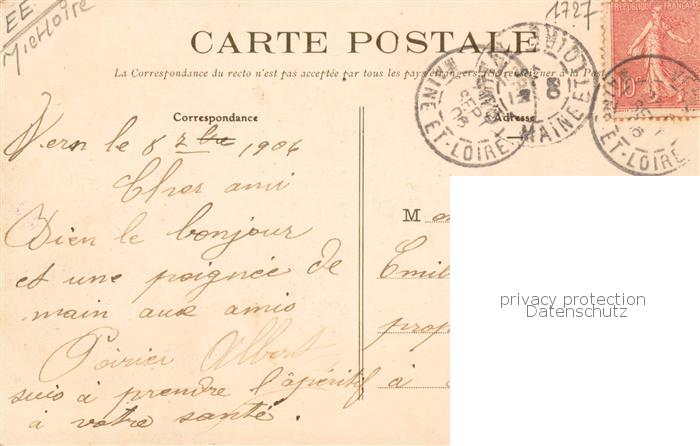 EE
M et Loire
1727
CARTE POSTALE
REPUBLIQUE FRANÇAISE
10
La Correspondance du recto n'est pas acceptée par tous les pays étrangers. (Se renseigner à la Poste
MAINE ET-LOIRE
MAINE ET
ET-LOIRE
Correspondance
Adresse
Vern le 8 7bre 1906
Cher ami
Bien le bonjour
et une poignée de
main aux amis
Poirier Albert
suis à prendre l'apéritif
à votre santé.
M
Emil
prop
à
privacy protection
Datenschutz